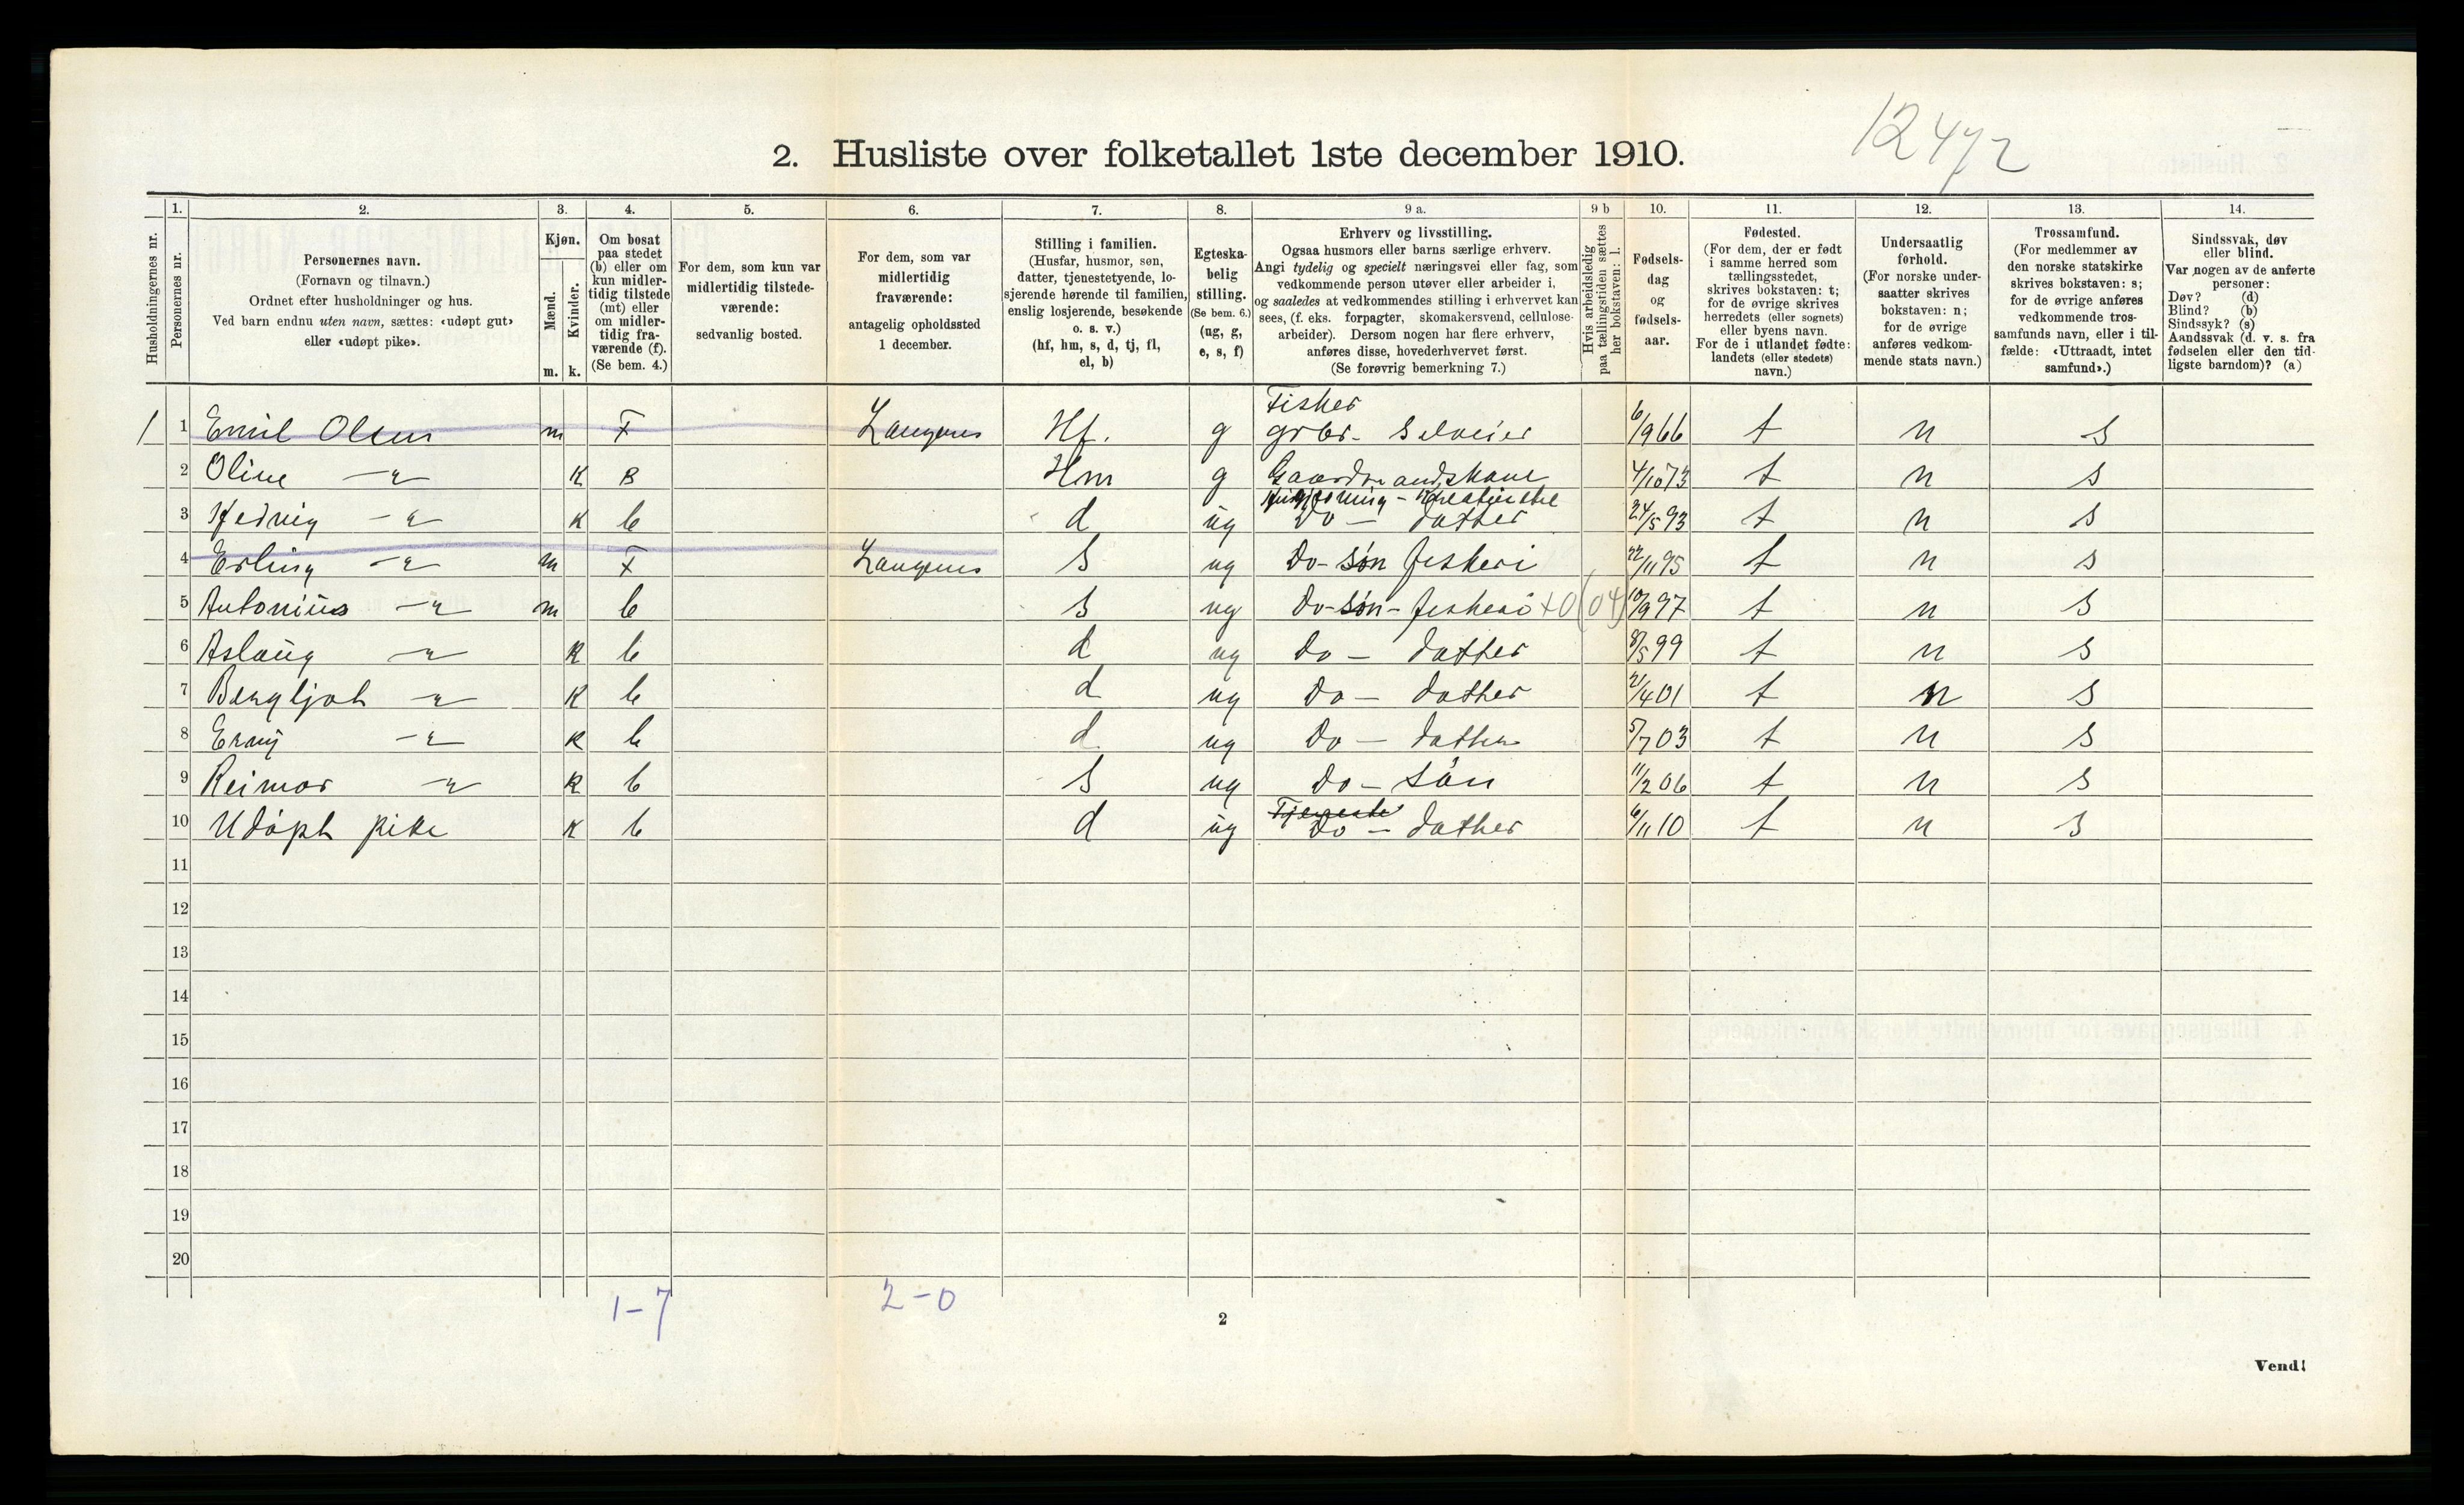 12472
2. Husliste over folketallet 1ste december 1910.
Husholdningernes nr.
1.
Personernes nr.
2.
Personernes navn.
(Fornavn og tilnavn.)
Ordnet efter husholdninger og hus.
Ved barn endnu uten navn, sættes: «udøpt gut»
eller «udøpt pike».
3.
Kjøn.
Mænd.
Kvinder.
m. k.
4.
Om bosat
paa stedet
(b) eller om
kun midler-
tidig tilstede
(mt) eller
om midler-
tidig fra-
værende (f).
(Se bem. 4.)
5.
For dem, som kun var
midlertidig tilstede-
værende:
sedvanlig bosted.
6.
For dem, som var
midlertidig
fraværende:
antagelig opholdssted
1 december.
7.
Stilling i familien.
(Husfar, husmor, søn,
datter, tjenestetyende, lo-
sjerende hørende til familien,
enslig losjerende, besøkende
o. s. v.)
(hf, hm, s, d, tj, fl,
el, b)
8.
Egteska-
belig
stilling.
(Se bem. 6.)
(ug, g,
e, s, f)
9 a.
Erhverv og livsstilling.
Ogsaa husmors eller barns særlige erhverv.
Angi tydelig og specielt næringsvei eller fag, som
vedkommende person utøver eller arbeider i,
og saaledes at vedkommendes stilling i erhvervet kan
sees, (f. eks. forpagter, skomakersvend, cellulose-
arbeider). Dersom nogen har flere erhverv,
anføres disse, hovederhvervet først.
(Se forøvrig bemerkning 7.)
9 b
Hvis arbeidsledig
paa tællingstiden sættes
her bokstaven: l.
10.
Fødsels-
dag
og
fødsels-
aar.
11.
Fødested.
(For dem, der er født
i samme herred som
tællingsstedet,
skrives bokstaven: t;
for de øvrige skrives
herredets (eller sognets)
eller byens navn.
For de i utlandet fødte:
landets (eller stedets)
navn.)
12.
Undersaatlig
forhold.
(For norske under-
saatter skrives
bokstaven: n;
for de øvrige
anføres vedkom-
mende stats navn.)
13.
Trossamfund.
(For medlemmer av
den norske statskirke
skrives bokstaven: s;
for de øvrige anføres
vedkommende tros-
samfunds navn, eller i til-
fælde: «Uttraadt, intet
samfund».)
14.
Sindssvak, døv
eller blind.
Var nogen av de anførte
personer:
Døv? (d)
Blind? (b)
Sindssyk? (s)
Aandssvak (d. v. s. fra
fødselen eller den tid-
ligste barndom)? (a)
Fisher
1 1 Emil Olsen m F Langenes Hf. g grbr. Selveier 6/9 66 t n s
2 Oline -"- k B Hm g Gaardmandskone 4/10 73 t n s
3 Hedvig -"- k b d ug Do - datter 24/5 93 t n s
4 Erling -"- m F Langenes s ug Do-søn fiskeri 22/11 95 t n s
5 Antonius -"- m b s ug Do-søn-fiskeri +0(04) 10/9 97 t n s
6 Aslaug -"- k b d ug Do - datter 8/5 99 t n s
7 Bergljot -"- k b d ug Do - datter 21/4 01 t n s
8 Erny -"- k b d ug Do - datter 5/7 03 t n s
9 Reimar -"- k b s ug Do - søn 11/2 06 t n s
10 Udøpt pike k b d ug Do - datter 6/11 10 t n s
11
12
13
14
15
16
17
18
19
20
1-7 2-0
2
Vend!